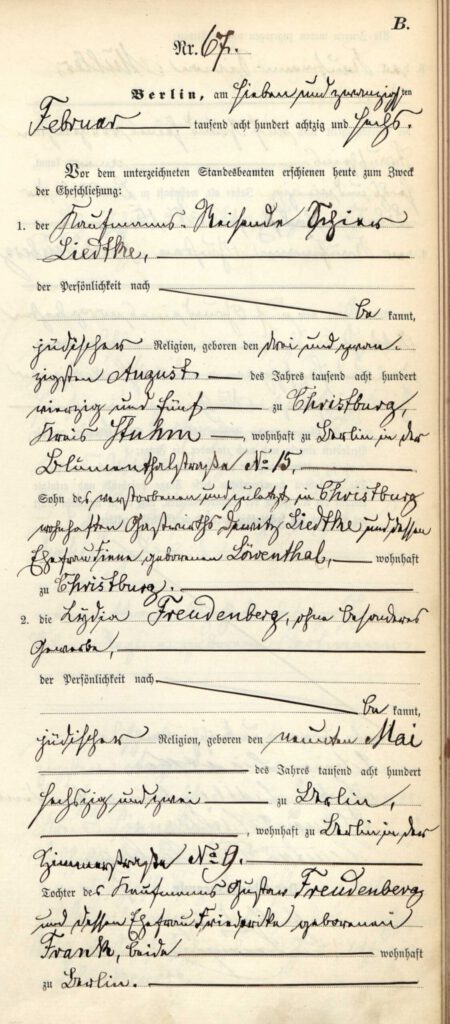 B.
Nr. 67.
Berlin, am sieben und zwanzigsten
Februar tausend acht hundert achtzig und sechs.
Vor dem unterzeichneten Standesbeamten erschienen heute zum Zweck
der Eheschließung:
1. der Kaufmanns-Reisende Schier
Liedtke,
der Persönlichkeit nach
be kannt,
jüdischer Religion, geboren den drei und zwan-
zigsten August des Jahres tausend acht hundert
vierzig und fünf zu Christburg,
Kreis Stuhm, wohnhaft zu Berlin in der
Blumenthalstraße No 15,
Sohn des verstorbenen und zuletzt in Christburg
wohnhaften Gastwirths Liedtke und dessen
Ehefrau geborenen Löwenthal, wohnhaft
zu Christburg.
2. die Lydia Freudenberg, ohne besonderes
Gewerbe,
der Persönlichkeit nach
be kannt,
jüdischer Religion, geboren den neunten Mai
des Jahres tausend acht hundert
sechszig und zwei zu Berlin,
, wohnhaft zu Berlin in der
Zimmerstraße No 9.
Tochter des Kaufmanns Gustav Freudenberg
und dessen Ehefrau Friederike geborenen
Frank, beide wohnhaft
zu Berlin.